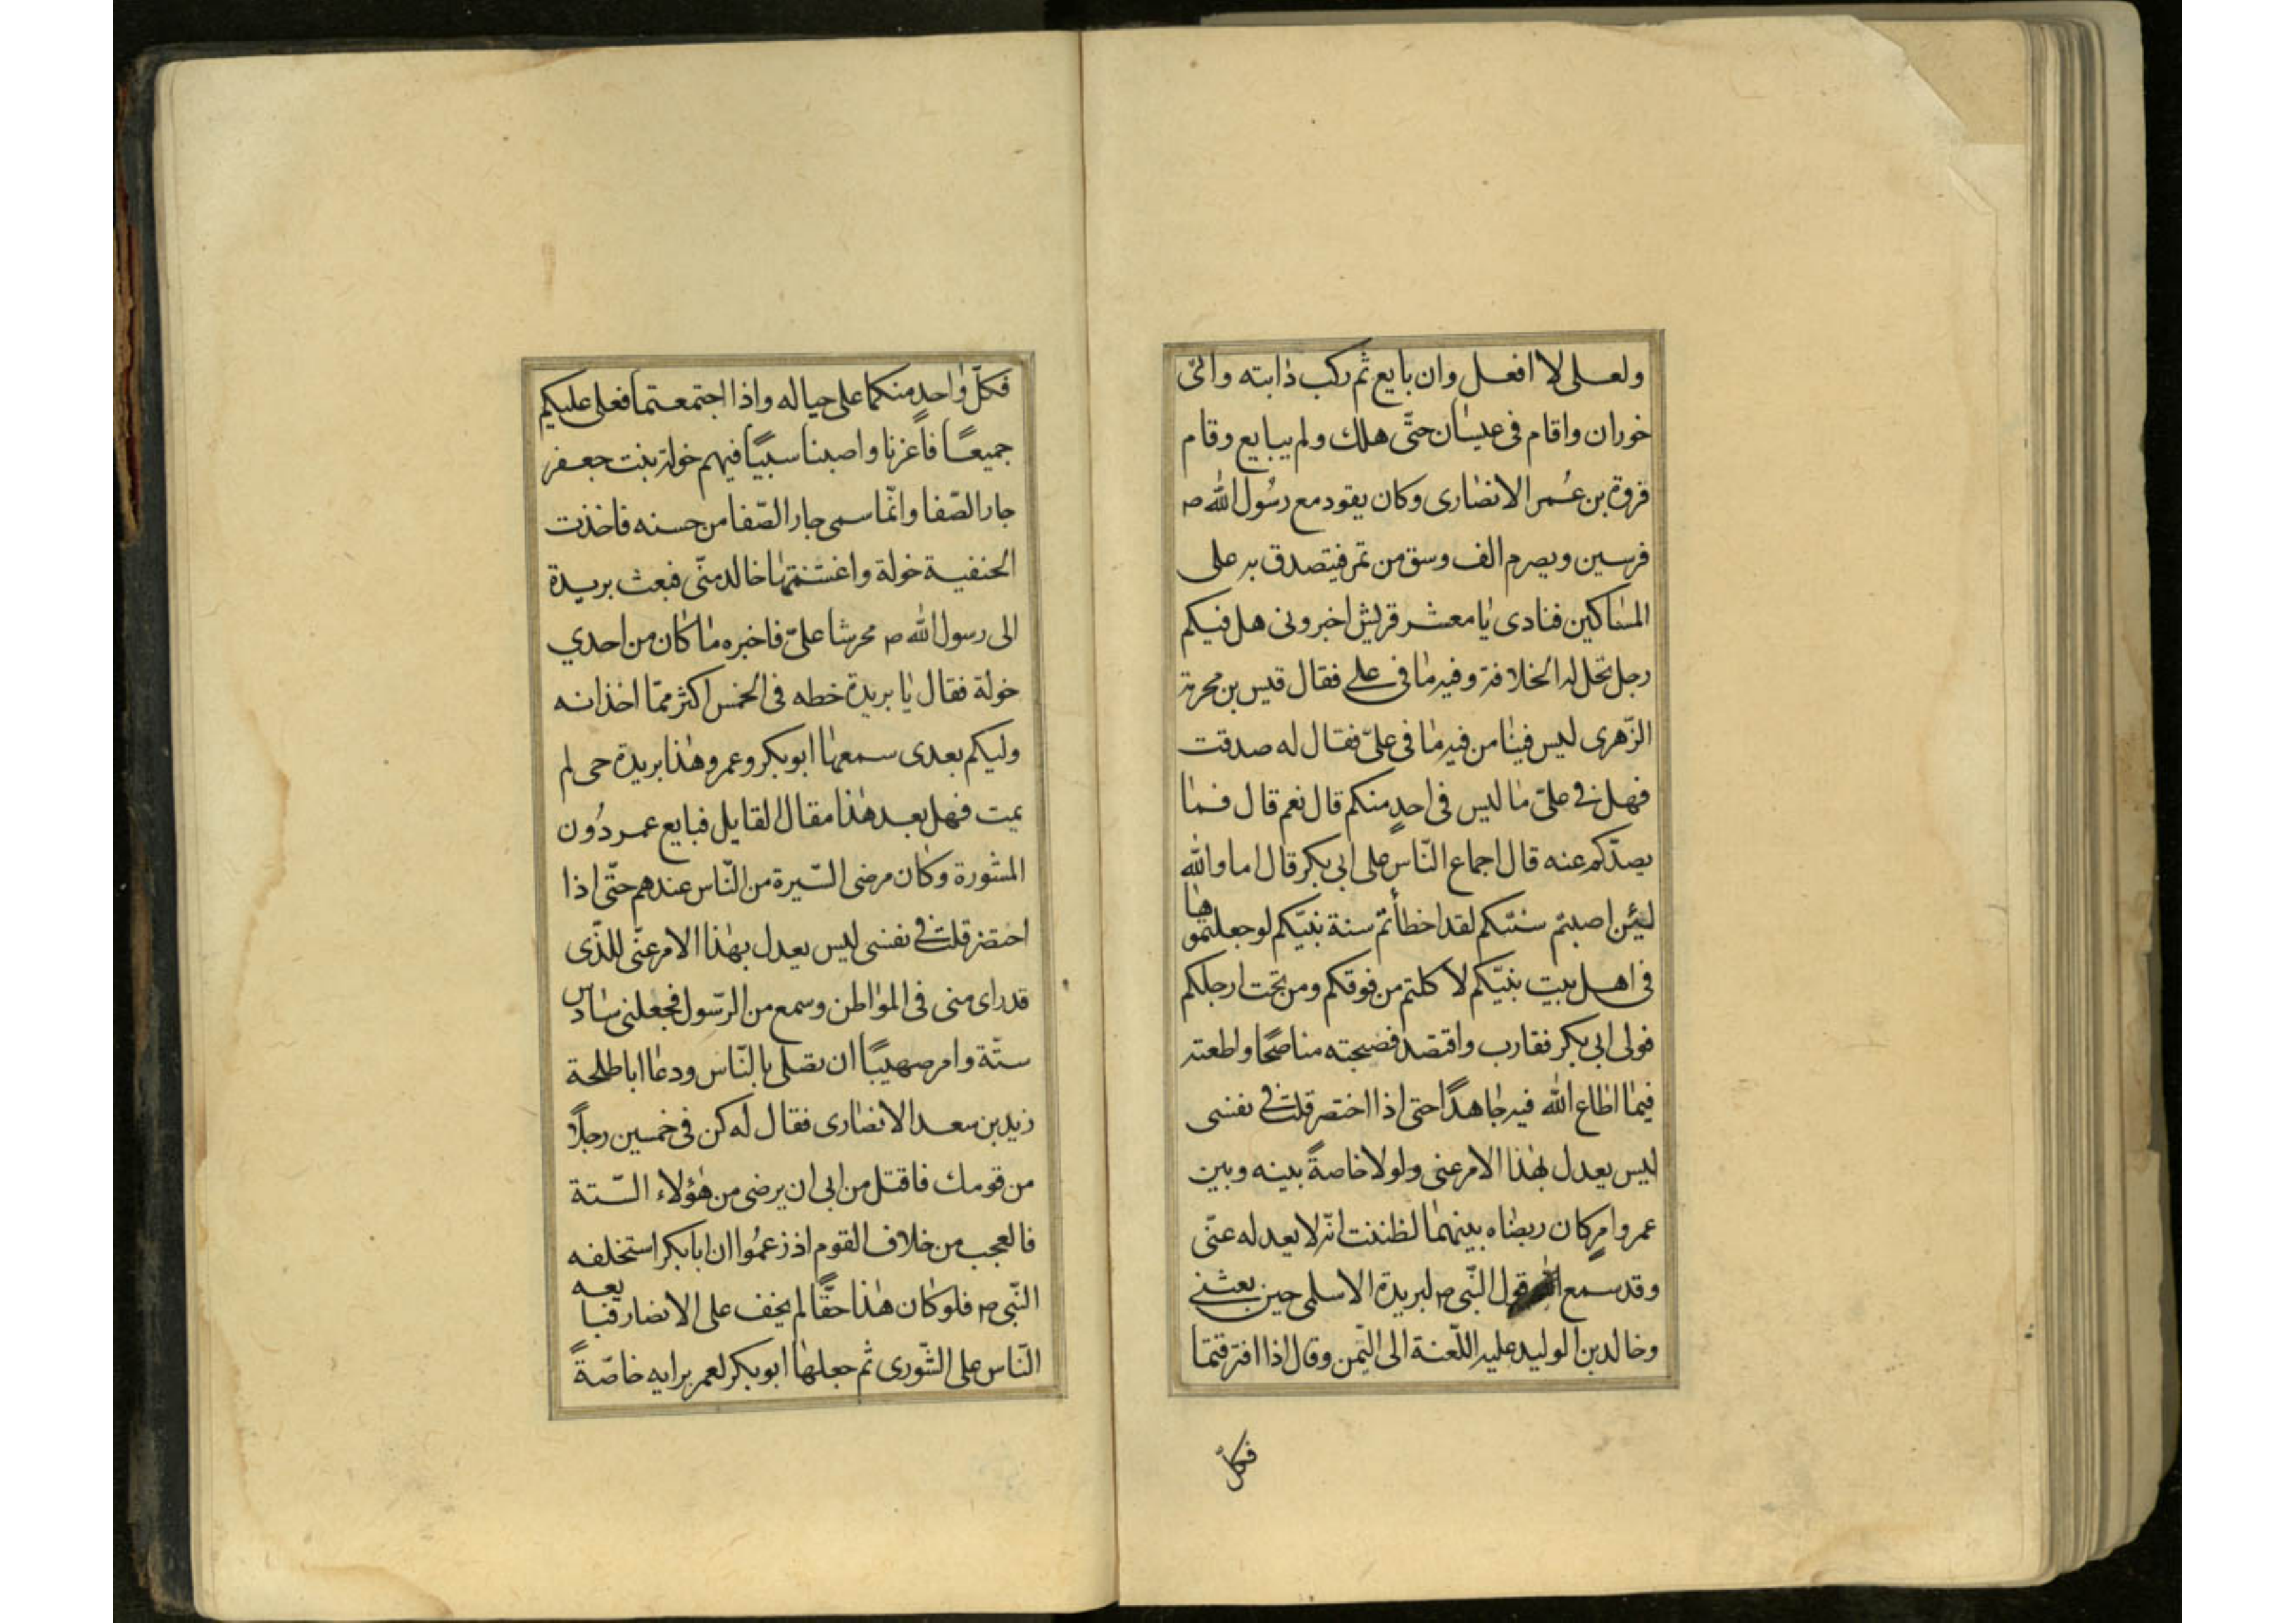 ولعلى لا افعل وان بايع ثم ركب دٰابته واتى
خوران واقام فى عيسان حتَّى هلك ولم يبايع وقام
فروة بن عُمر الانصٰارى وكان يقود مع رسُول اللّٰه ص
فرسين ويصرم الف وسق من تمر فيتصدق به على
المسٰاكين فنادى يٰا معشر قريش اخبرونى هل فيكم
رجل تحل له الخلافة وفيه مٰا فى على فقال قيس بن مخرمة
الزّهرى ليس فينٰا من فيه مٰا فى علىّ فقال له صدقت
فهل فى علىّ مٰا ليس فى احدٍ منكم قال نعم قال فمٰا
يصدّكم عنه قال اجماع النّاس على ابى بكر قال اما واللّٰه
لئِن اصبتم سنتكم لقد اخطأتم سنة نبيّكم لو جعلتموهٰا
فى اهل بيت نبيّكم لاكلتم من فوقكم ومن تحت ارجلكم
فولى ابى بكر فقارب واقتصد فصحبته مناصحًا واطعته
فيمٰا اطٰاع اللّٰه فيه جٰاهدًا حتى اذا احتضر قلت فى نفسى
ليس يعدل بهٰذا الامر عنى ولولا خاصةً بينه وبين
عمر وامرٍ كان ربضٰاه بينهمٰا لظننت انّه لا يعدله عنّى
وقد سمع قول النّبى ص لبريدة الاسلمى حين بعثنى
وخالد بن الوليد عليه اللّعنة الى اليّمن وقال اذا افترقتمٰا
فكلّ
فكلّ وٰاحدٍ منكما على حياله واذا اجتمعتما فعلى عليكم
جميعًا فأغزنا واصبنا سبيًا فيهم خولة بنت جعفر
جار الصّفا وانّما سمى جار الصّفا من حسنه فاخذت
الحنفية خولة واغتنمهٰا خالد منّى فبعث بريدة
الى رسول اللّٰه ص محرشا علىّ فاخبره مٰا كٰان من احدي
خولة فقال يٰا بريدة خطه فى الخمس اكثر ممّا اخذ انه
وليكم بعدى سمعهٰا ابو بكر وعمر وهٰذا بريدة حى لم
يمت فهل بعد هٰذا مقال القايل فبايع عمر دُون
المشورة وكٰان مرضى السّيرة من النّاس عندهم حتّى اذا
احتضر قلت فى نفسى ليس يعدل بهٰذا الامر عنّى للذّى
قد راى منى فى المؤاطن وسمع من الرّسول فجعلنى سٰادس
ستّة وامر صهيبًا ان يصلى بالنّاس ودعٰا ابا طلحة
زيد بن سعد الانصٰارى فقال له كن فى خمسين رجلًا
من قومك فاقتل من ابى ان يرضى من هٰؤلاء السّتة
فالعجب من خلاف القوم اذ زعمُوا ان ابا بكر استخلفه
النّبى ص فلو كٰان هٰذا حقًّا لم يخف على الانصار فبايعه
النّاس على الشّورى ثم جعلهٰا ابو بكر لعمر برايه خاصّةً